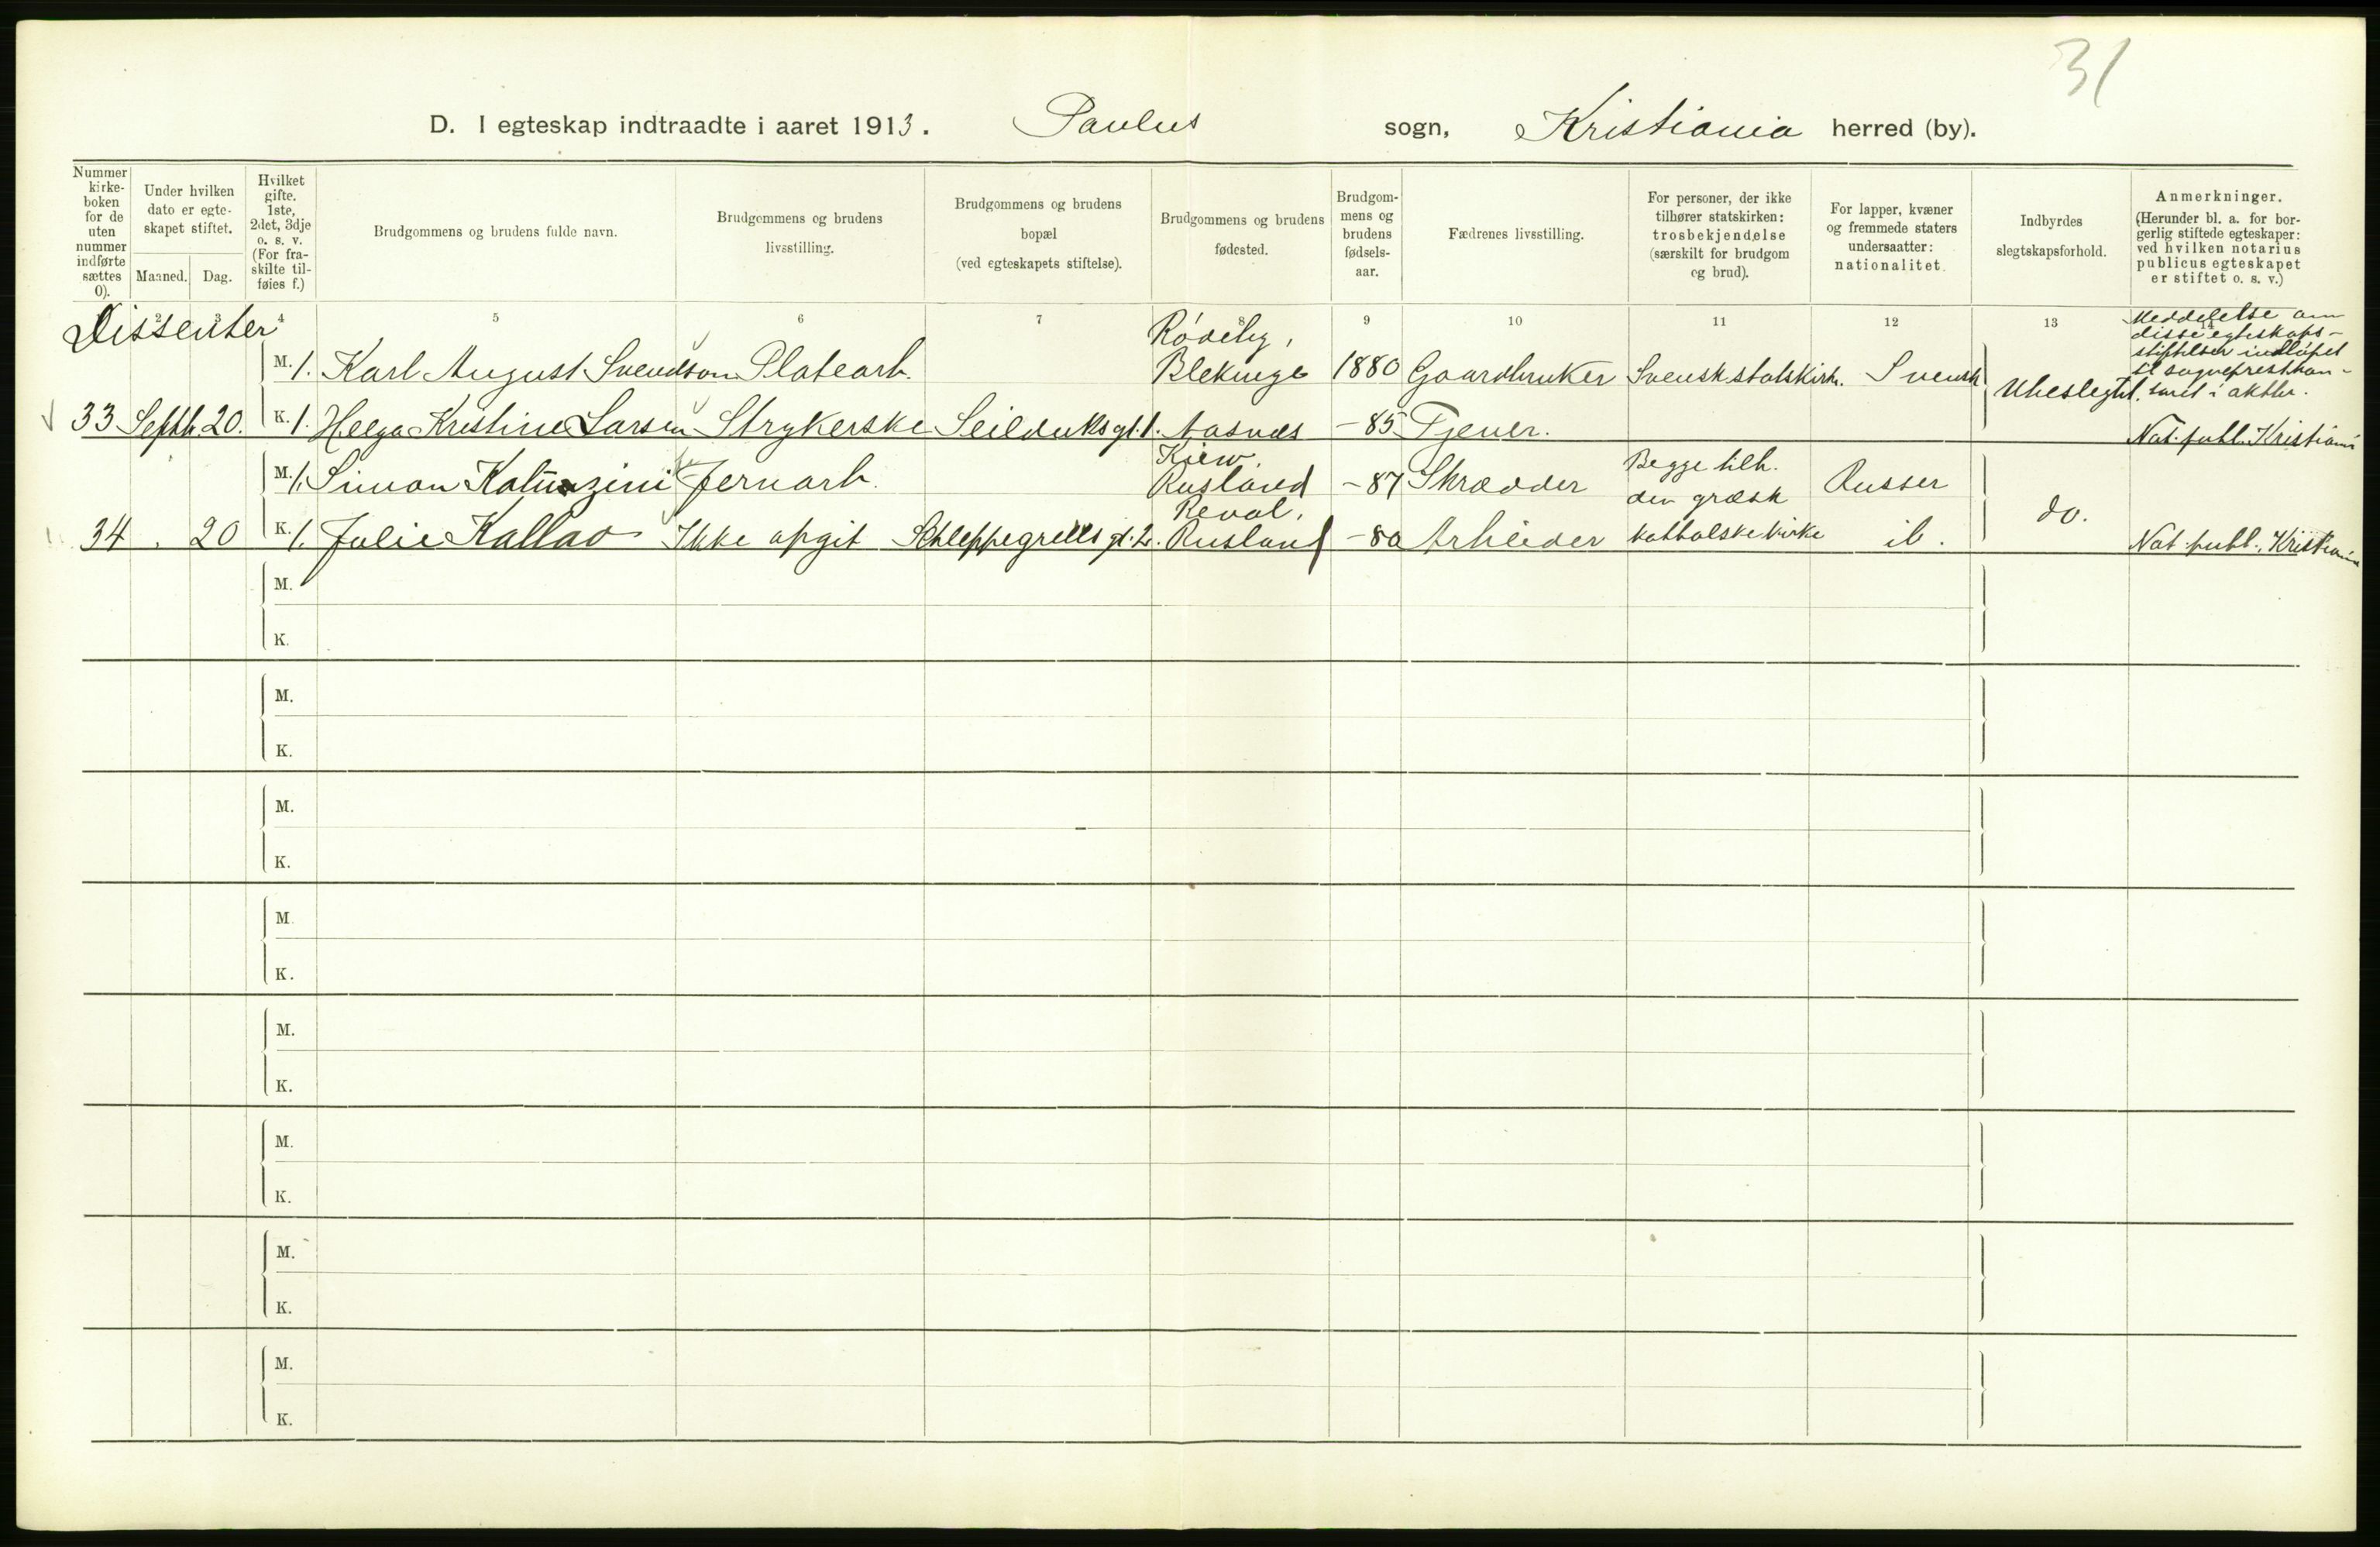 31
D. I egteskap indtraadte i aaret 1913. Paulus sogn, Kristiania herred (by).
Nummer kirkeboken for de uten nummer indførte sættes 0).
Under hvilken dato er egteskapet stiftet.
Maaned. Dag.
Hvilket gifte. 1ste, 2det, 3dje o. s. v. (For fraskilte tilføies f.)
Brudgommens og brudens fulde navn.
Brudgommens og brudens livsstilling.
Brudgommens og brudens bopæl (ved egteskapets stiftelse).
Brudgommens og brudens fødested.
Brudgommens og brudens fødselsaar.
Fædrenes livsstilling.
For personer, der ikke tilhører statskirken: trosbekjendelse (særskilt for brudgom og brud).
For lapper, kvæner og fremmede staters undersaatter: nationalitet.
Indbyrdes slegtskapsforhold.
Anmerkninger. (Herunder bl. a. for borgerlig stiftede egteskaper: ved hvilken notarius publicus egteskapet er stiftet o. s. v.)
2 3 4 5 6 7 8 9 10 11 12 13 14
Dissenter
Meddelelse om disse egteskapsstiftelser indløpet
M. 1. Karl August Svendson Platearb. Rödeby, Blekinge 1880 Gaardbruker Svensk statskirk. Svensk
33 Septb. 20. K. 1. Helga Kristine Larsen Strykerske Seilduksgt. 1. Aasnes -85 Tjener. Ubeslegtet. Not. publ. Kristiania
M. 1. Simon Katunzini Jernarb. Kiew, Rusland -87 Skrædder Begge tilh. den græsk Russer
34 . 20 K. 1. Julie Kallao Ikke opgit Schleppegrells gt. 2. Reval, Rusland -80 Arbeider katholske kirke ib. do. Not. publ., Kristiania
M.
K.
M.
K.
M.
K.
M.
K.
M.
K.
M.
K.
M.
K.
M.
K.